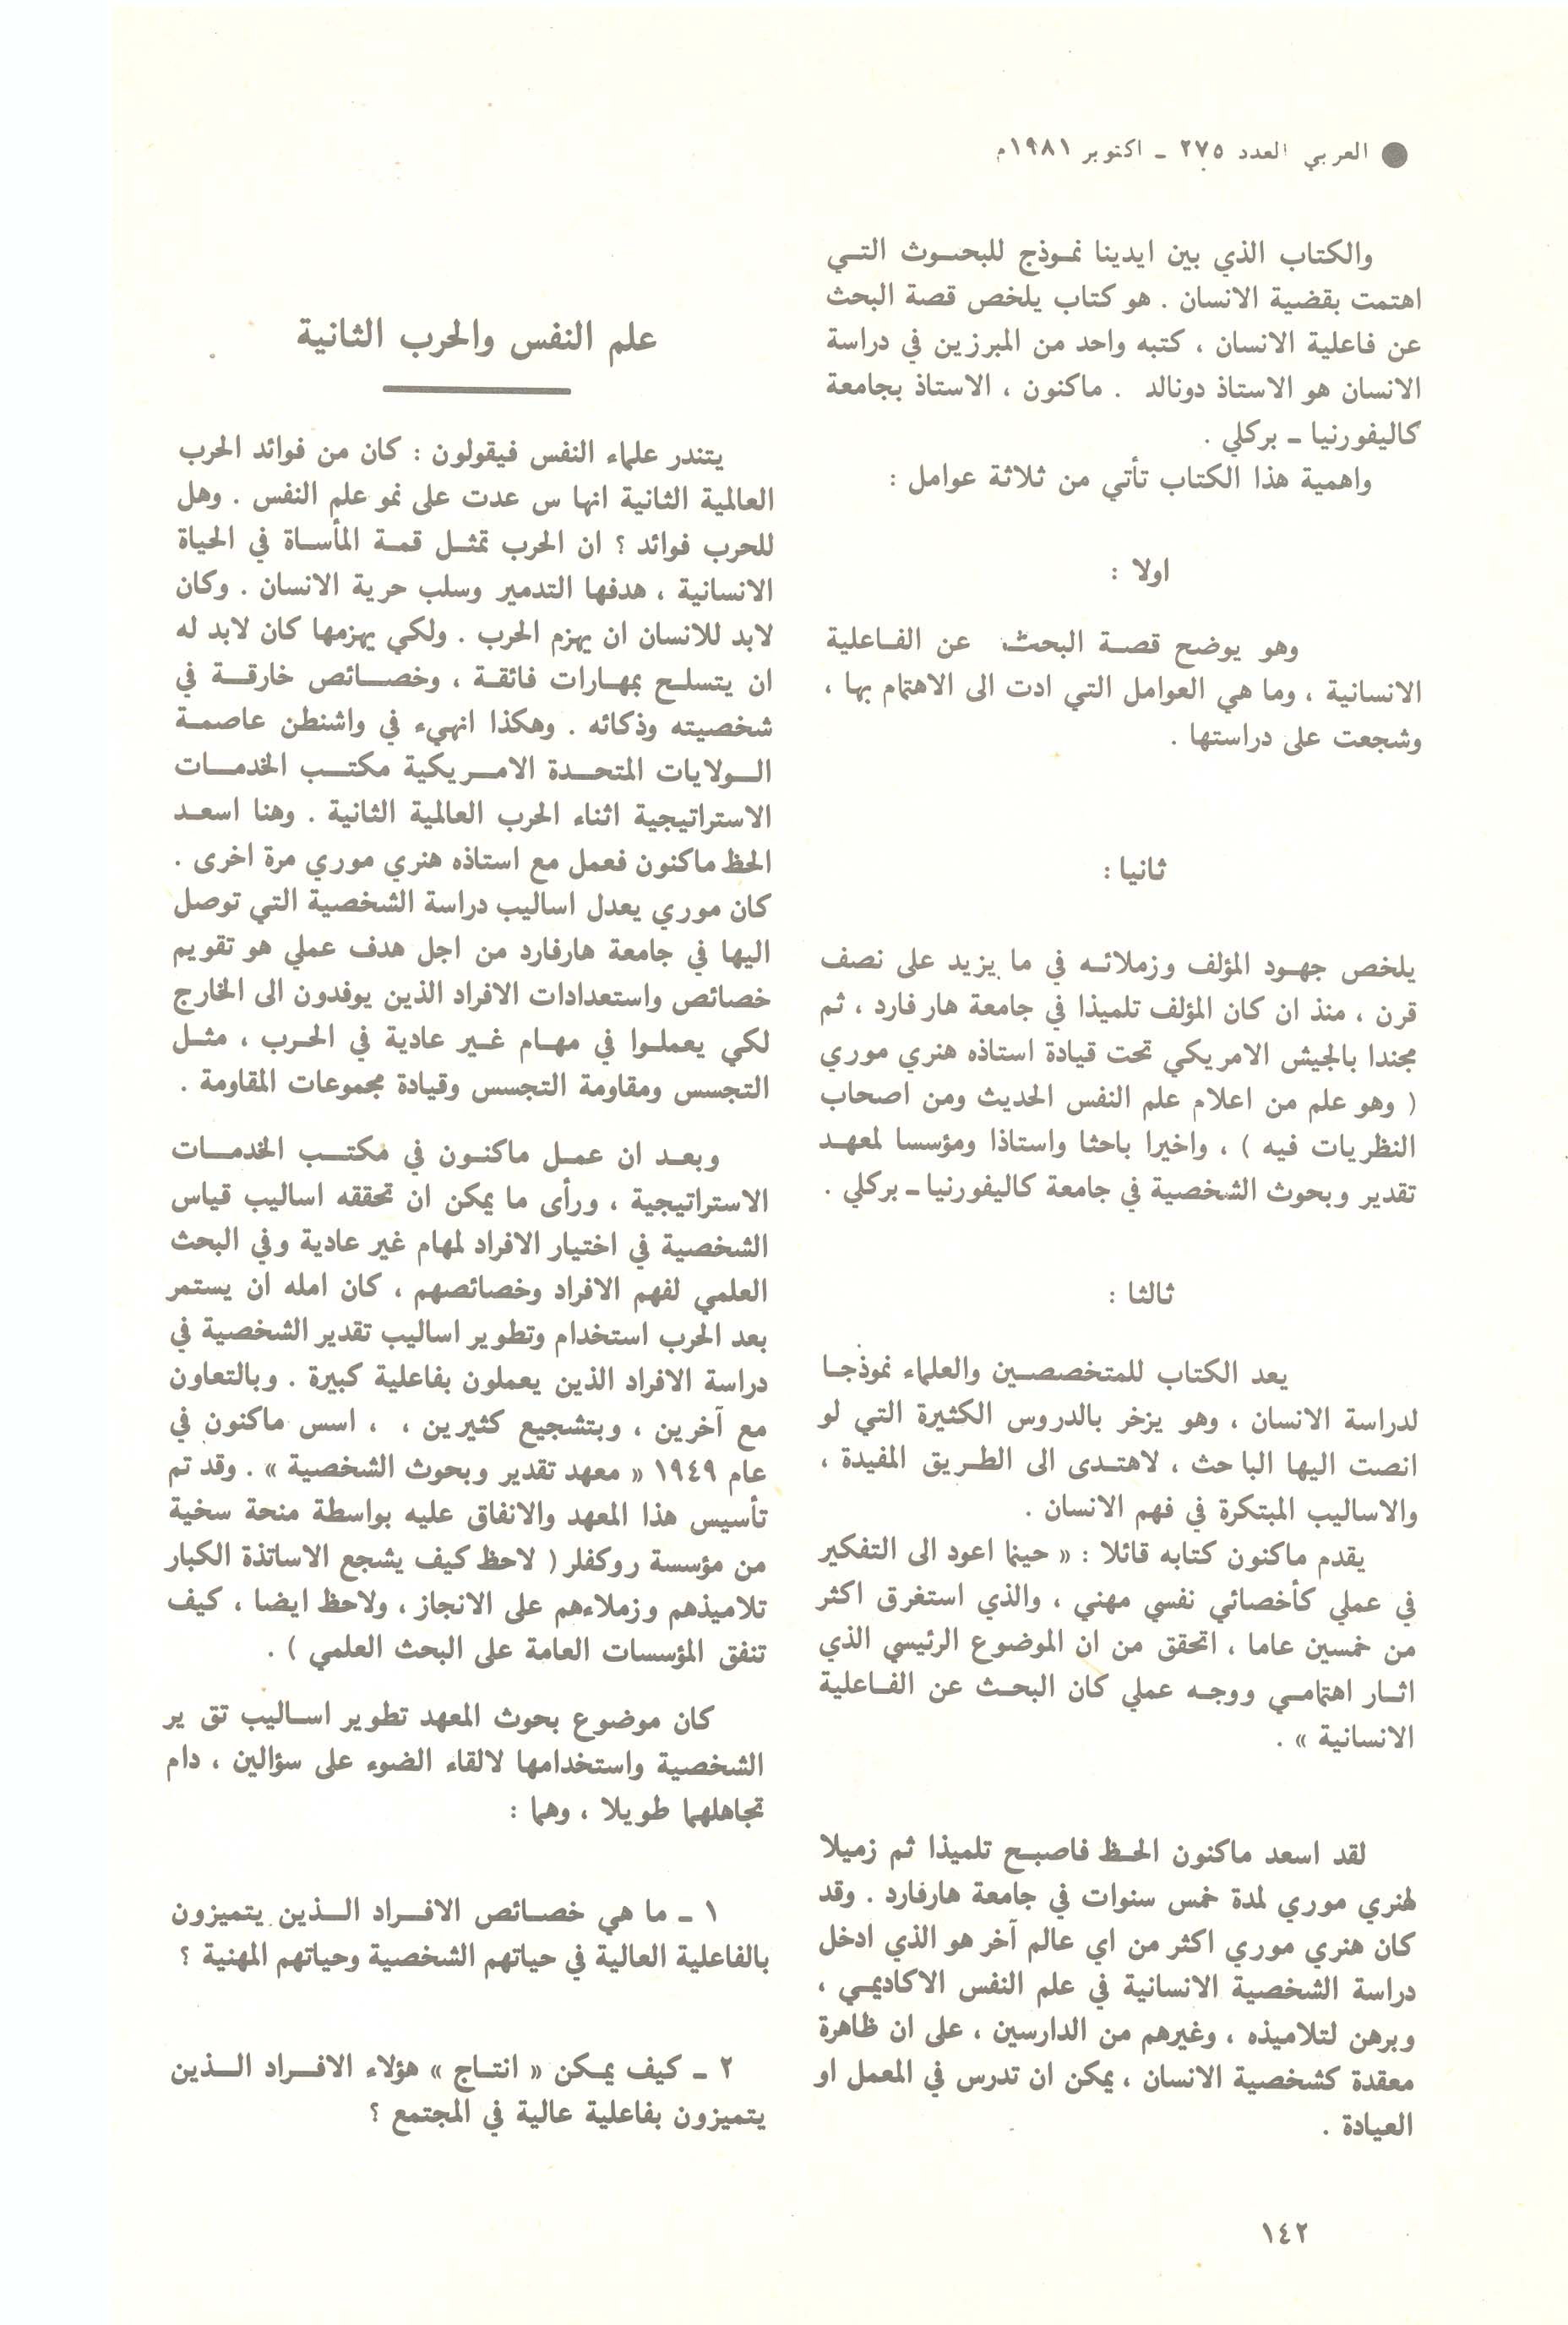 العربي العدد ٢٧٥ ـ اكتوبر ١٩٨١م
والكتاب الذي بين ايدينا نموذج للبحوث التي
اهتمت بقضية الانسان . هو كتاب يلخص قصة البحث
عن فاعلية الانسان ، كتبه واحد من المبرزين في دراسة
الانسان هو الاستاذ دونالد . ماكنون ، الاستاذ بجامعة
كاليفورنيا ـ بركلي .
واهمية هذا الكتاب تأتي من ثلاثة عوامل :
اولا :
وهو يوضح قصة البحث عن الفاعلية
الانسانية ، وما هي العوامل التي ادت الى الاهتمام بها ،
وشجعت على دراستها .
ثانيا :
يلخص جهود المؤلف وزملائه في ما يزيد على نصف
قرن ، منذ ان كان المؤلف تلميذا في جامعة هارفارد ، ثم
مجندا بالجيش الامريكي تحت قيادة استاذه هنري موري
( وهو علم من اعلام علم النفس الحديث ومن اصحاب
النظريات فيه ) ، واخيرا باحثا واستاذا ومؤسسا لمعهد
تقدير وبحوث الشخصية في جامعة كاليفورنيا ـ بركلي .
ثالثا :
يعد الكتاب للمتخصصين والعلماء نموذجا
لدراسة الانسان ، وهو يزخر بالدروس الكثيرة التي لو
انصت اليها الباحث ، لاهتدى الى الطريق المفيدة ،
والاساليب المبتكرة في فهم الانسان .
يقدم ماكنون كتابه قائلا : « حينما اعود الى التفكير
في عملي كأخصائي نفسي مهني ، والذي استغرق اكثر
من خمسين عاما ، اتحقق من ان الموضوع الرئيسي الذي
اثار اهتمامي ووجه عملي كان البحث عن الفاعلية
الانسانية » .
لقد اسعد ماكنون الحظ فاصبح تلميذا ثم زميلا
لهنري موري لمدة خمس سنوات في جامعة هارفارد . وقد
كان هنري موري اكثر من اي عالم آخر هو الذي ادخل
دراسة الشخصية الانسانية في علم النفس الاكاديمي ،
وبرهن لتلاميذه ، وغيرهم من الدارسين ، على ان ظاهرة
معقدة كشخصية الانسان ، يمكن ان تدرس في المعمل او
العيادة .
علم النفس والحرب الثانية
يتندر علماء النفس فيقولون : كان من فوائد الحرب
العالمية الثانية انها س عدت على نمو علم النفس . وهل
للحرب فوائد ؟ ان الحرب تمثل قمة المأساة في الحياة
الانسانية ، هدفها التدمير وسلب حرية الانسان . وكان
لابد للانسان ان يهزم الحرب . ولكي يهزمها كان لابد له
ان يتسلح بمهارات فائقة ، وخصائص خارقة في
شخصيته وذكائه . وهكذا انهيء في واشنطن عاصمة
الولايات المتحدة الامريكية مكتب الخدمات
الاستراتيجية اثناء الحرب العالمية الثانية . وهنا اسعد
الحظ ماكنون فعمل مع استاذه هنري موري مرة اخرى .
كان موري يعدل اساليب دراسة الشخصية التي توصل
اليها في جامعة هارفارد من اجل هدف عملي هو تقويم
خصائص واستعدادات الافراد الذين يوفدون الى الخارج
لكي يعملوا في مهام غير عادية في الحرب ، مثل
التجسس ومقاومة التجسس وقيادة مجموعات المقاومة .
وبعد ان عمل ماكنون في مكتب الخدمات
الاستراتيجية ، ورأى ما يمكن ان تحققه اساليب قياس
الشخصية في اختيار الافراد لمهام غير عادية وفي البحث
العلمي لفهم الافراد وخصائصهم ، كان امله ان يستمر
بعد الحرب استخدام وتطوير اساليب تقدير الشخصية في
دراسة الافراد الذين يعملون بفاعلية كبيرة . وبالتعاون
مع آخرين ، وبتشجيع كثيرين ، ، اسس ماكنون في
عام ١٩٤٩ « معهد تقدير وبحوث الشخصية » . وقد تم
تأسيس هذا المعهد والانفاق عليه بواسطة منحة سخية
من مؤسسة روكفلر ( لاحظ كيف يشجع الاساتذة الكبار
تلاميذهم وزملاءهم على الانجاز ، ولاحظ ايضا ، كيف
تنفق المؤسسات العامة على البحث العلمي ) .
كان موضوع بحوث المعهد تطوير اساليب تق ير
الشخصية واستخدامها لالقاء الضوء على سؤالين ، دام
تجاهلهما طويلا ، وهما :
١ ـ ما هي خصائص الافراد الذين يتميزون
بالفاعلية العالية في حياتهم الشخصية وحياتهم المهنية ؟
٢ ـ كيف يمكن « انتاج » هؤلاء الافراد الذين
يتميزون بفاعلية عالية في المجتمع ؟
١٤٢